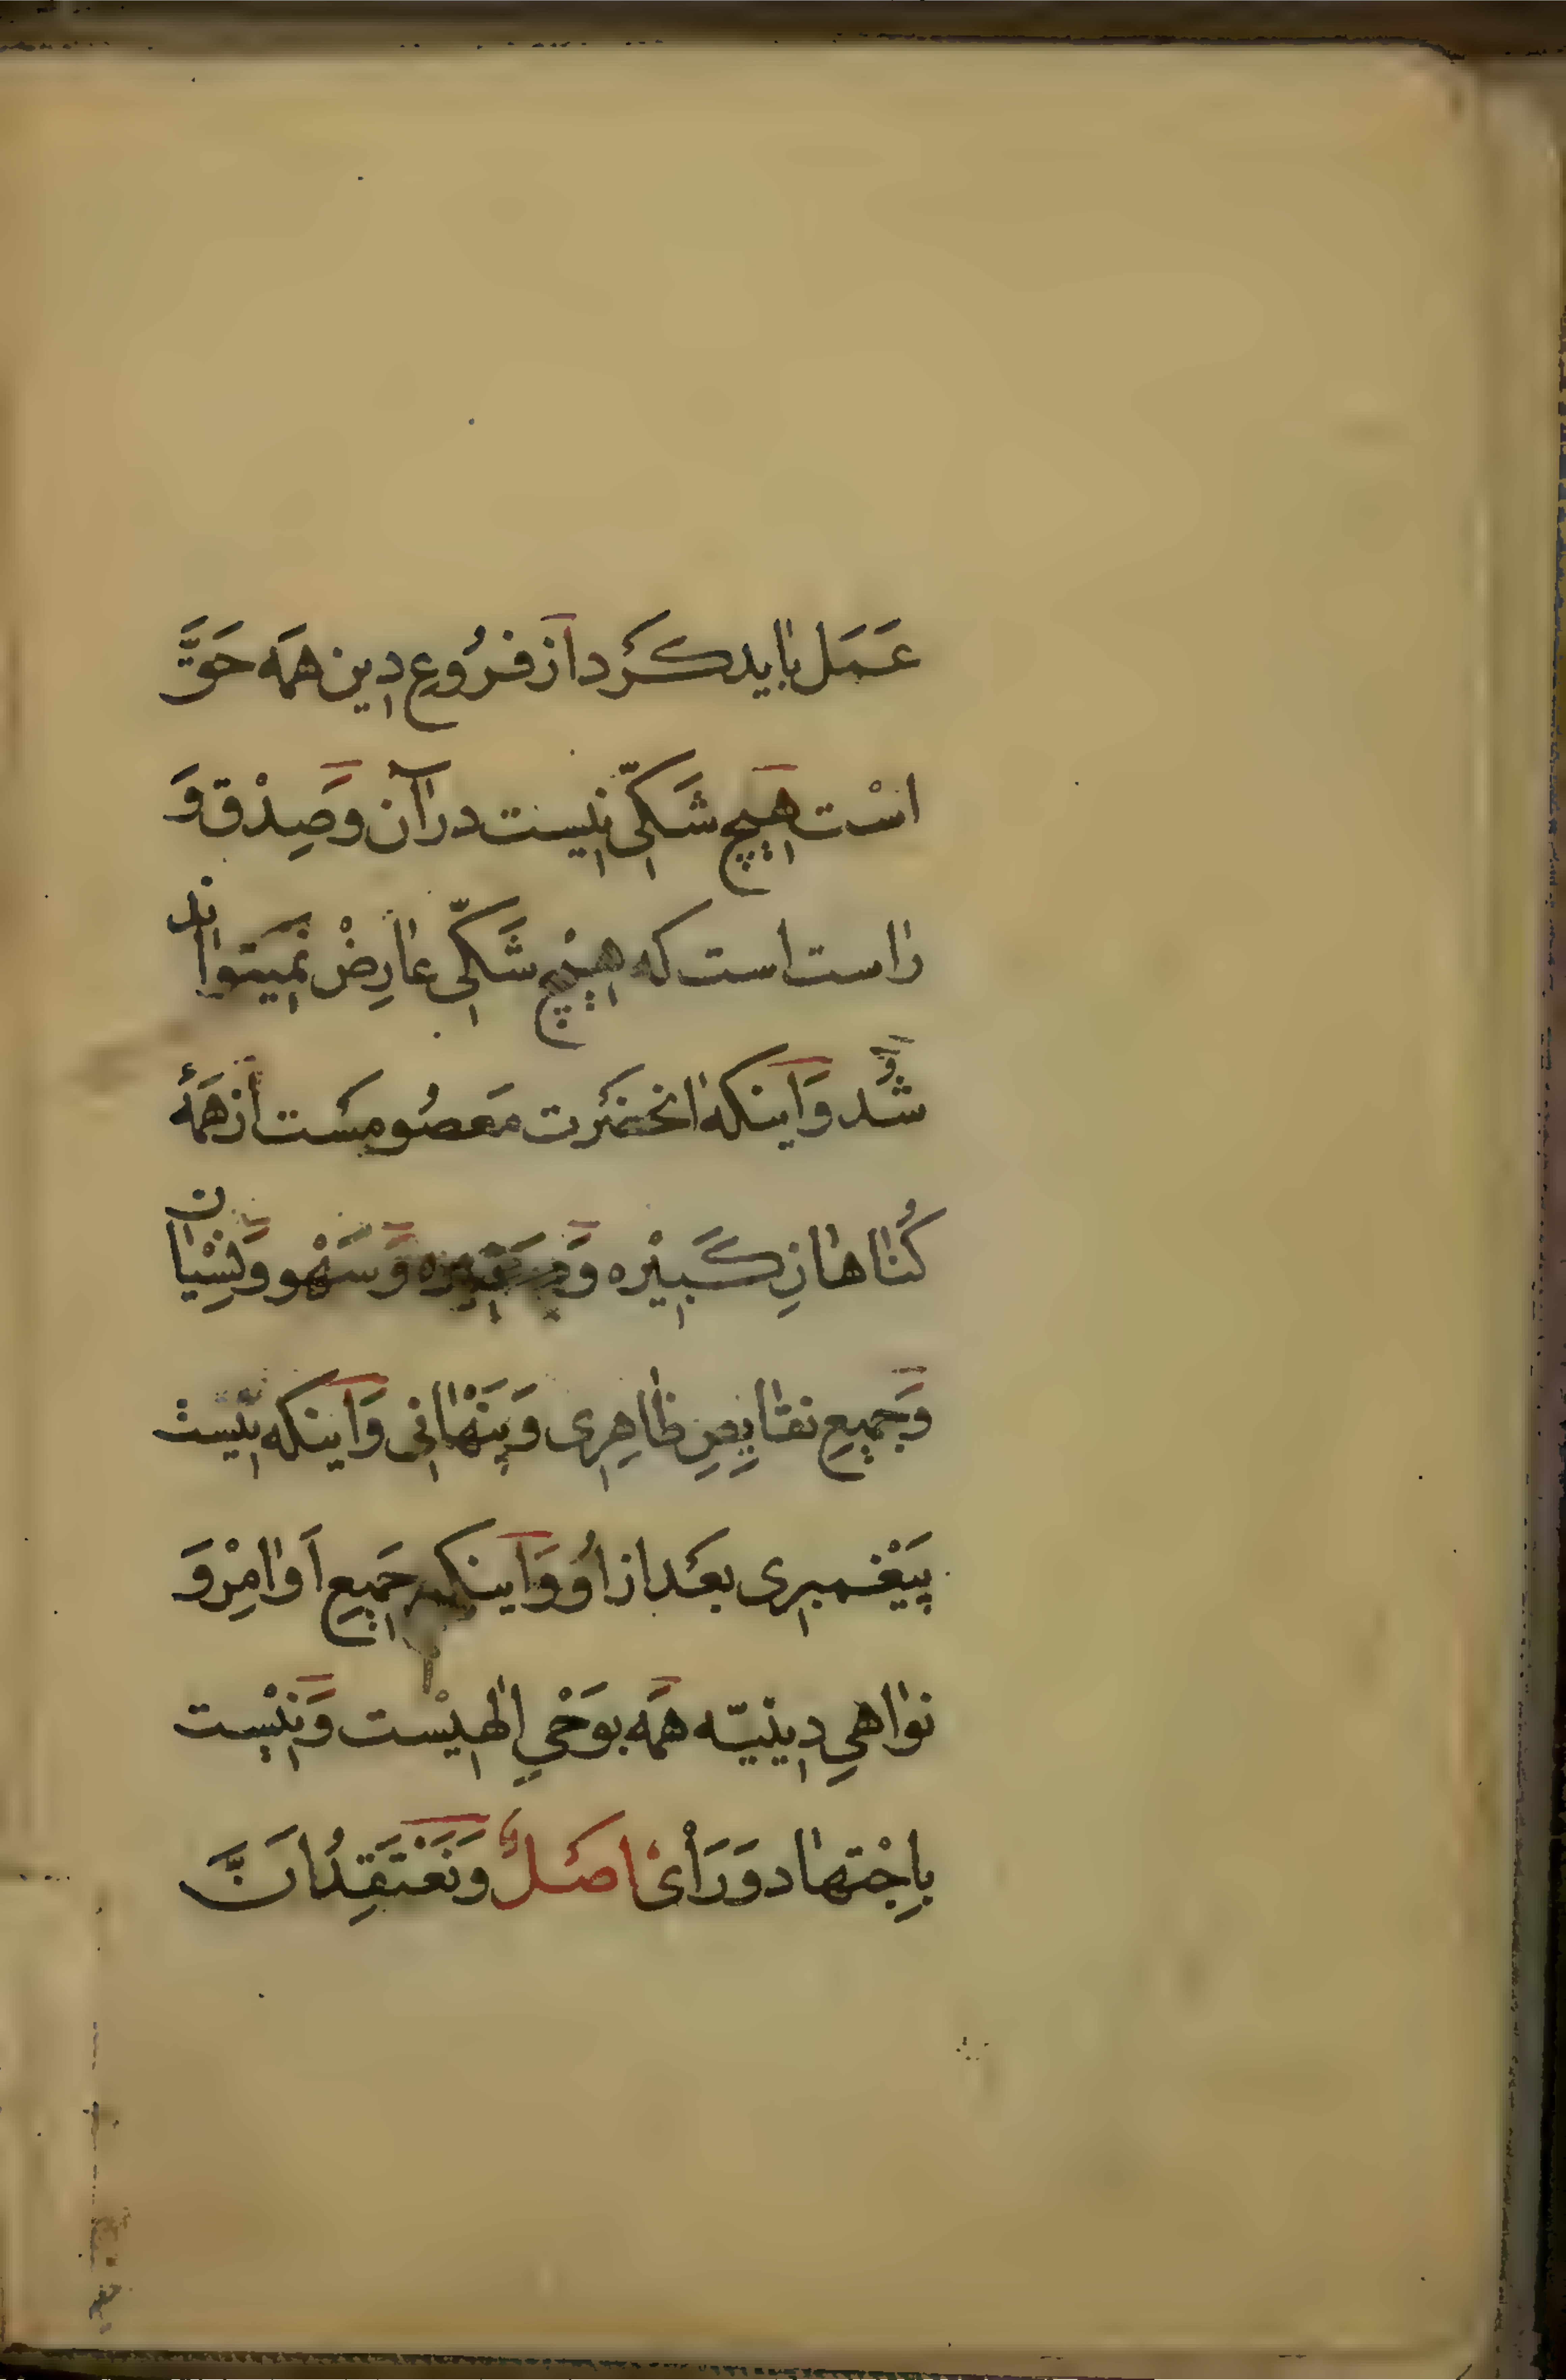 عَمَل بايد كَرد از فرُوعِ دِين همَه حَقَّ
اسْت هِيچ شَكّى نِيست در آن وَصِدْق وَ
راست است كه هِيْچ شَكّى عارِضْ نَمِيتواند
شُد وَاينكه انحضَرت مَعصُومسَت از همَۀ
كُناهان كَبِيْره وَصَغِيره وَسَهْو وَنِسْيان
وَجمِيعِ نقايِصِ ظاهِرى وَپَنْهانى وَاينكه نِيست
پَيْغمبرِى بعَد از اُو وَاينكه جَمِيعِ اَوامِرْ وَ
نواهىِ دِينيّه همَه بوَحْىِ الٰهِيْست وَنِيْست
باِجْتهاد وَرَأى اصَل وَنَعْتَقِدُ اَنَّ